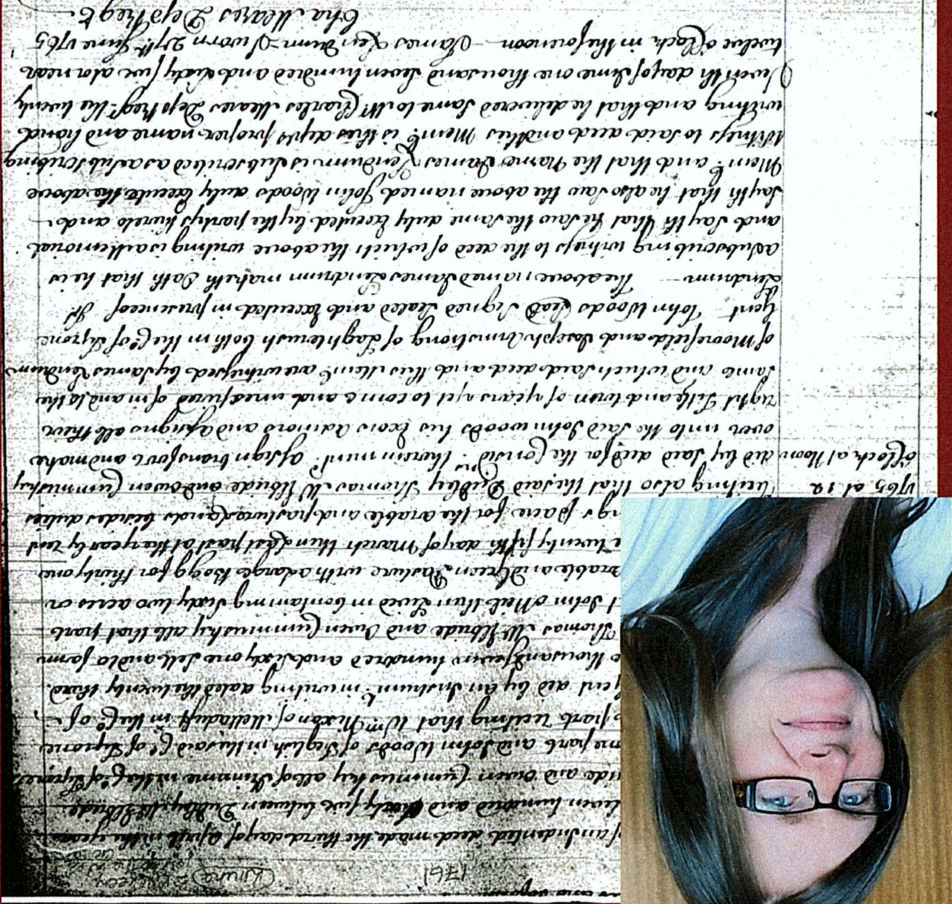 1761
an indented deed made the third day of April in the year
hundred and sixty five between Dudley McIlbude
and Owen Cummusky all of in the Co. of Tyrone
one part and John Woods of in the said Co. of Tyrone
part reciting that Wm. Nixon of in the Co. of
did by an Instrumt. in writing dated the twenty third
thousand seven hundred and sixty one Sett and to farm
Thomas McIlbude and Owen Cummusky all that part
John ONeil then lived in Containing Sixty two acres or
arable and Green Pasture with a large Bogg for thirty one
twenty fifth day of March then last past at the yearly rent
pace for the arable and pasture Lands besides duties
reciting also that the said Dudley Thomas McIlbude and Owen Cummusky
1765 at 12
did by said deed for the Consid. therein mentd. assign transfer and make
o'Clock at Noon
over unto the said John Woods his Execrs. Admors. and assigns all their
right Title and term of years yet to come and unexpired of in and to the
same and which said deed and this Mem. are witnessed by James Lendrum
of Moorefield and Joseph Armstrong of Laghterush both in the Co. of Tyrone
Gent John Woods (Seal) Signed Sealed and Executed in presence of Js.
Lendrum The above named James Lendrum maketh Oath that he is
a subscribing witness to the deed of which the above writing is a Memorial
and sayth that he saw the same duly Executed by the partys thereto and
sayth that he also saw the above named John Woods duly Execute the above
Meml. and that the Name James Lendrum is subscribed as a subscribing
Witness to said deed and this Meml. is this depts. proper name and hand
writing and that he delivered same to Mr. Charles Meares Dep. Regr. the twenty
Seventh day of June one thousand seven hundred and sixty five at or near
twelve o'Clock in the forenoon James Lendrum Sworn 27th. June 1765
Cha. Meares Dep. Regr.